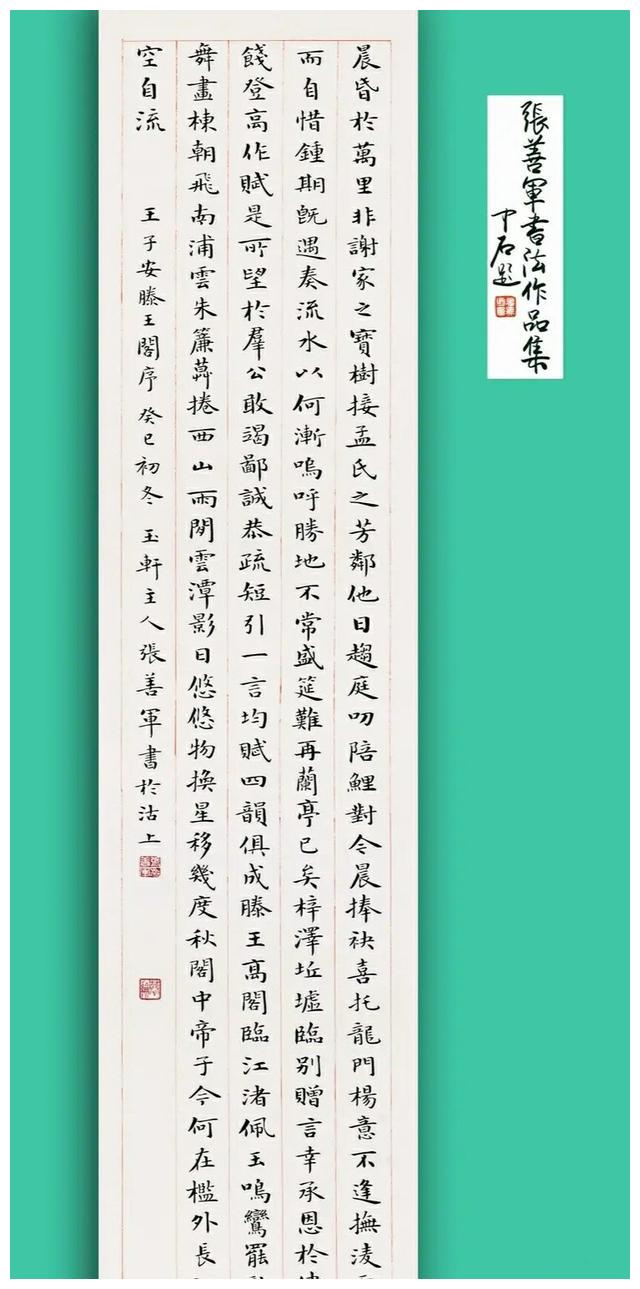 張善軍書法作品集
中石題
晨昏於萬里非謝家之寶樹接孟氏之芳鄰他日趨庭叨陪鯉對今晨捧袂喜托龍門楊意不逢撫淩
而自惜鍾期既遇奏流水以何漸嗚呼勝地不常盛筵難再蘭亭已矣梓澤坵墟臨別贈言幸承恩於
餞登高作賦是所望於羣公敢竭鄙誠恭疏短引一言均賦四韻俱成滕王高閣臨江渚佩玉鳴鸞罷
舞畫棟朝飛南浦雲朱簾暮捲西山雨閒雲潭影日悠悠物換星移幾度秋閣中帝子今何在檻外長
空自流 王子安滕王閣序 癸巳初冬 玉軒主人張善軍書於沽上